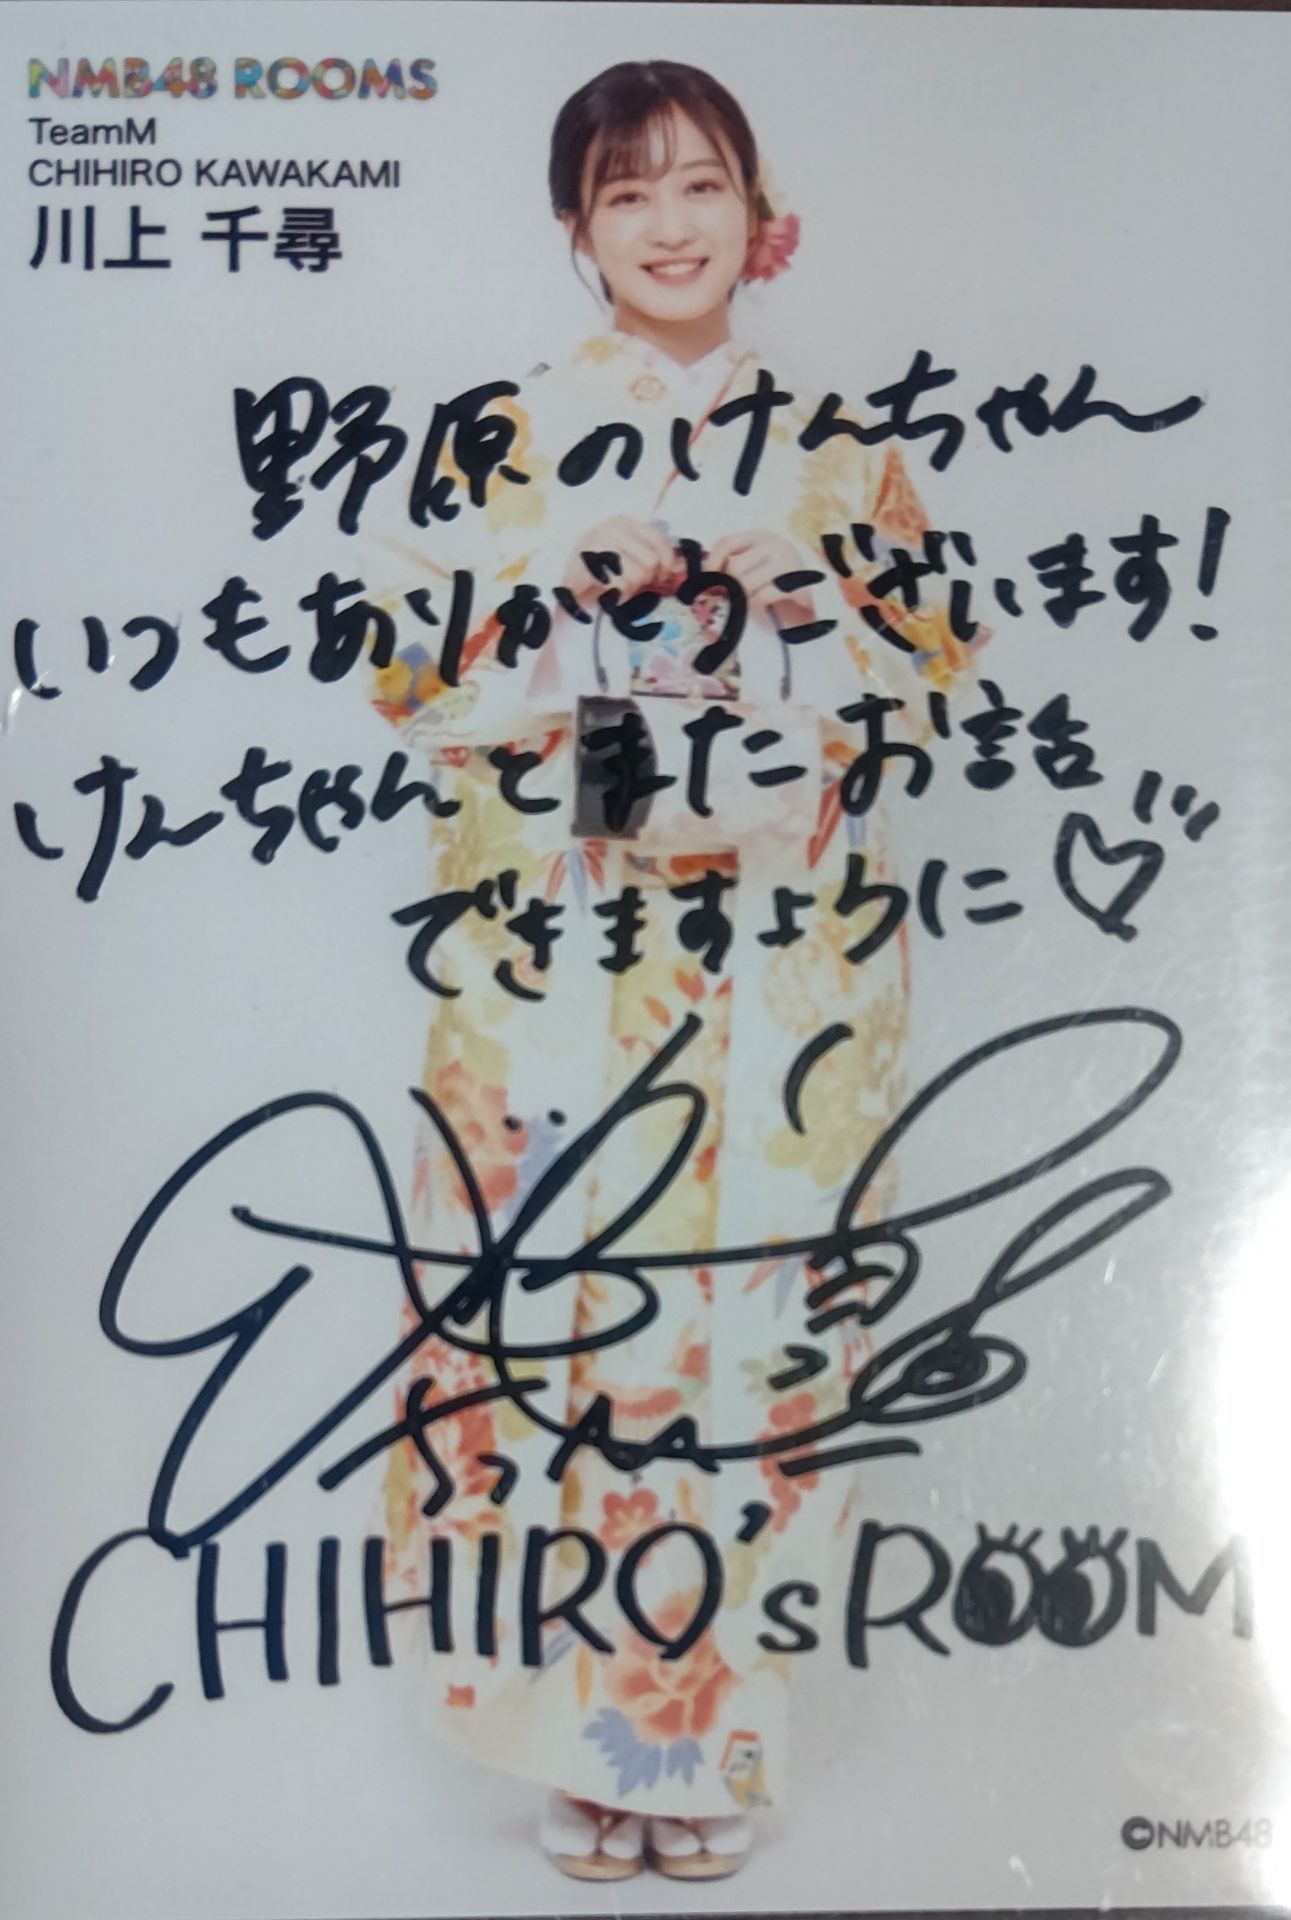 NMB48 ROOMS
TeamM
CHIHIRO KAWAKAMI
川上 千尋
野原のけんちゃん
いつもありがとうございます!
けんちゃんとまたお話
できますように♡
CHIHIRO'S ROOM
©NMB48